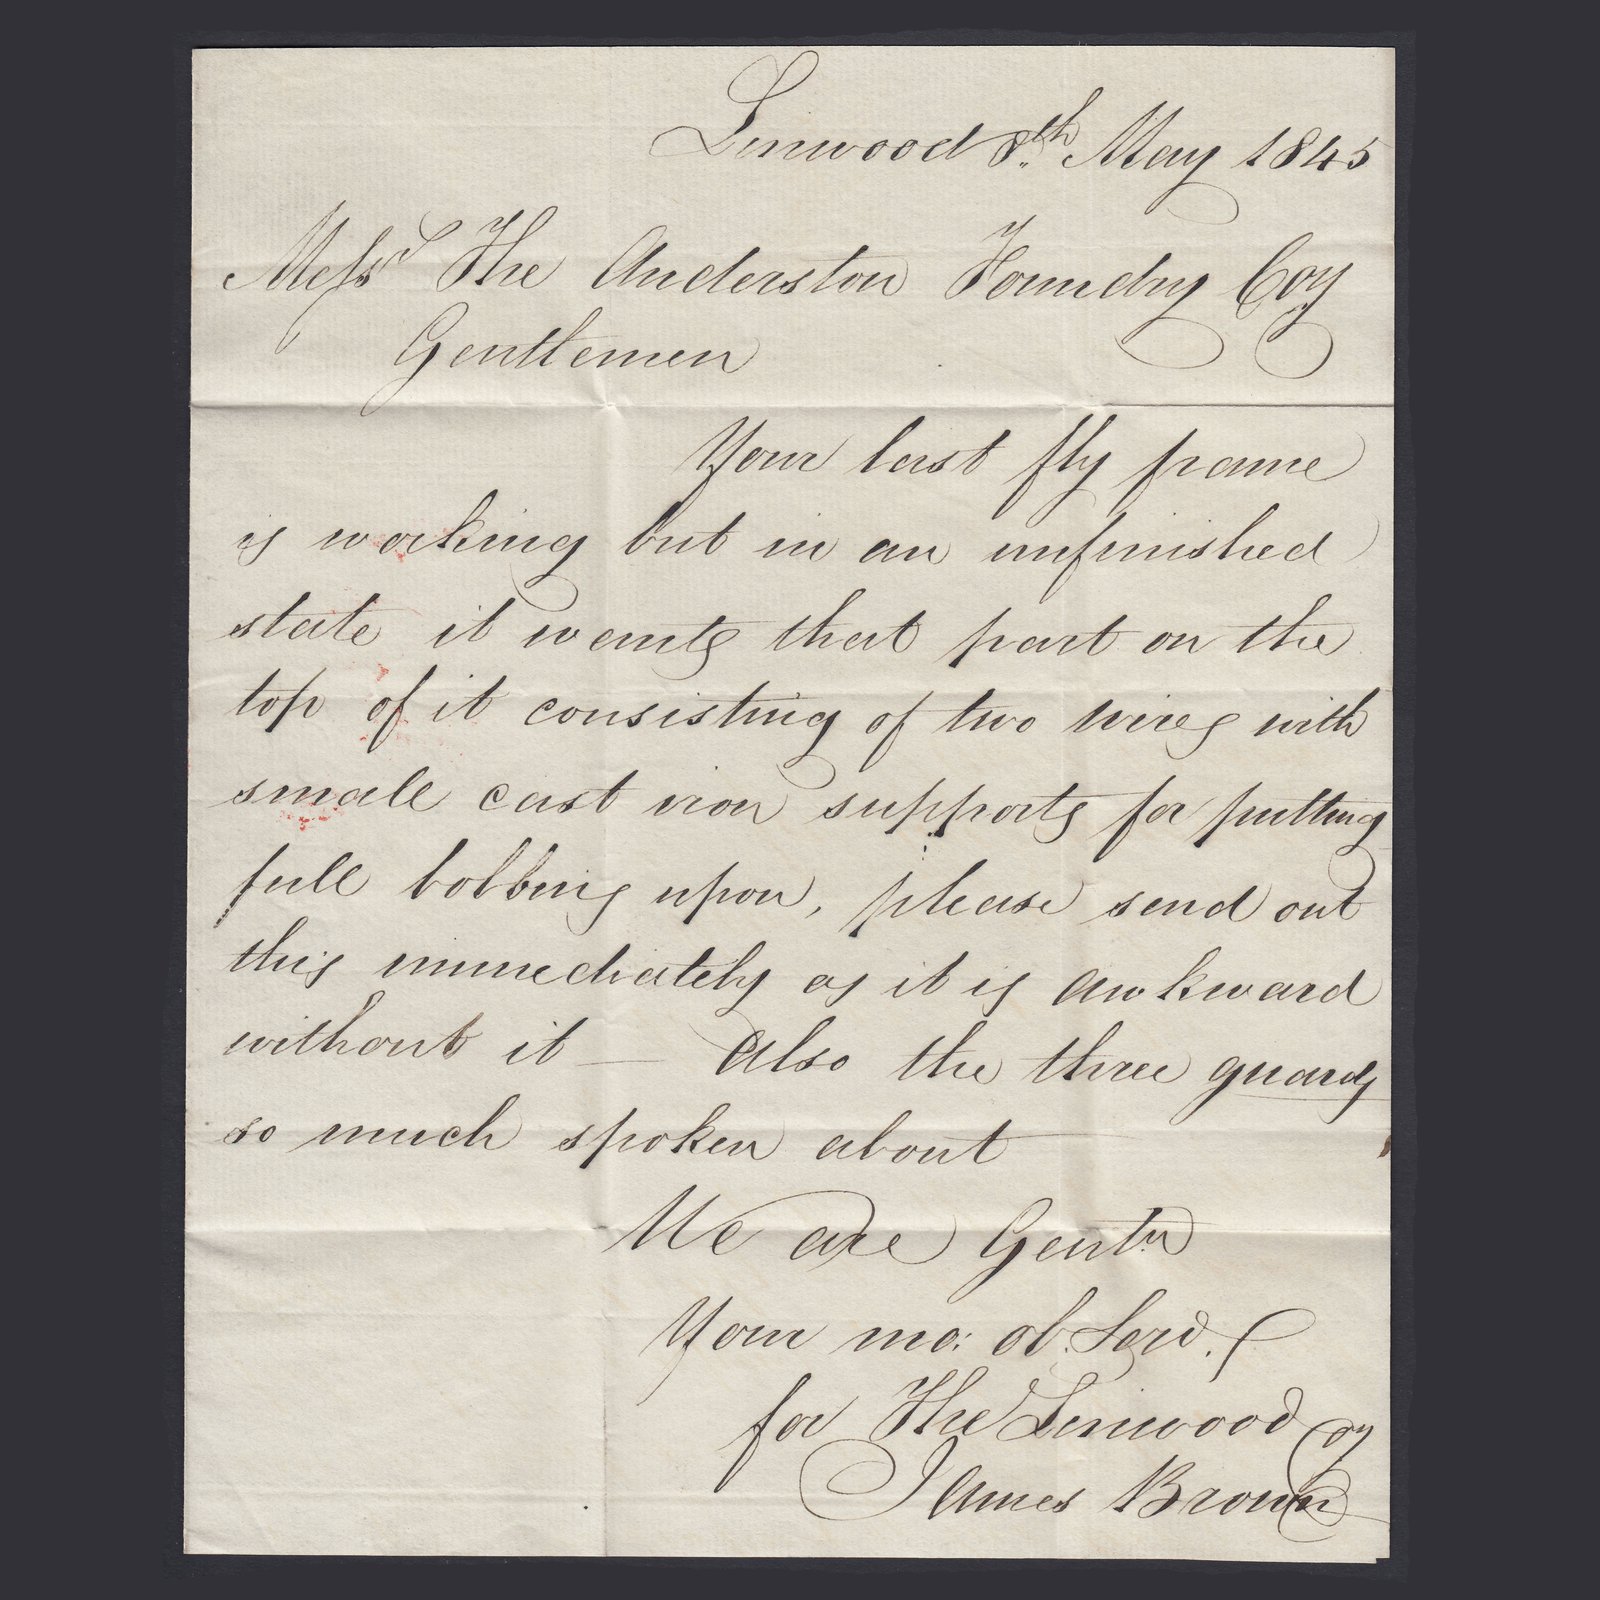 Linwood 8th May 1845
Messrs The Anderston Foundry Coy
Gentlemen
Your last fly frame
is working but in an unfinished
state it wants that part on the
top of it consisting of two wires with
small cast iron supports for putting
full bobbins upon, please send out
this immediately as it is awkward
without it — Also the three guards
so much spoken about
We are Gentn
Your mo: ob. Serv.
for The Linwood Coy
James Brown